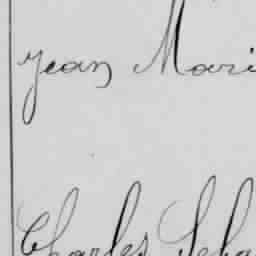 Jean Mari
Charles Seba